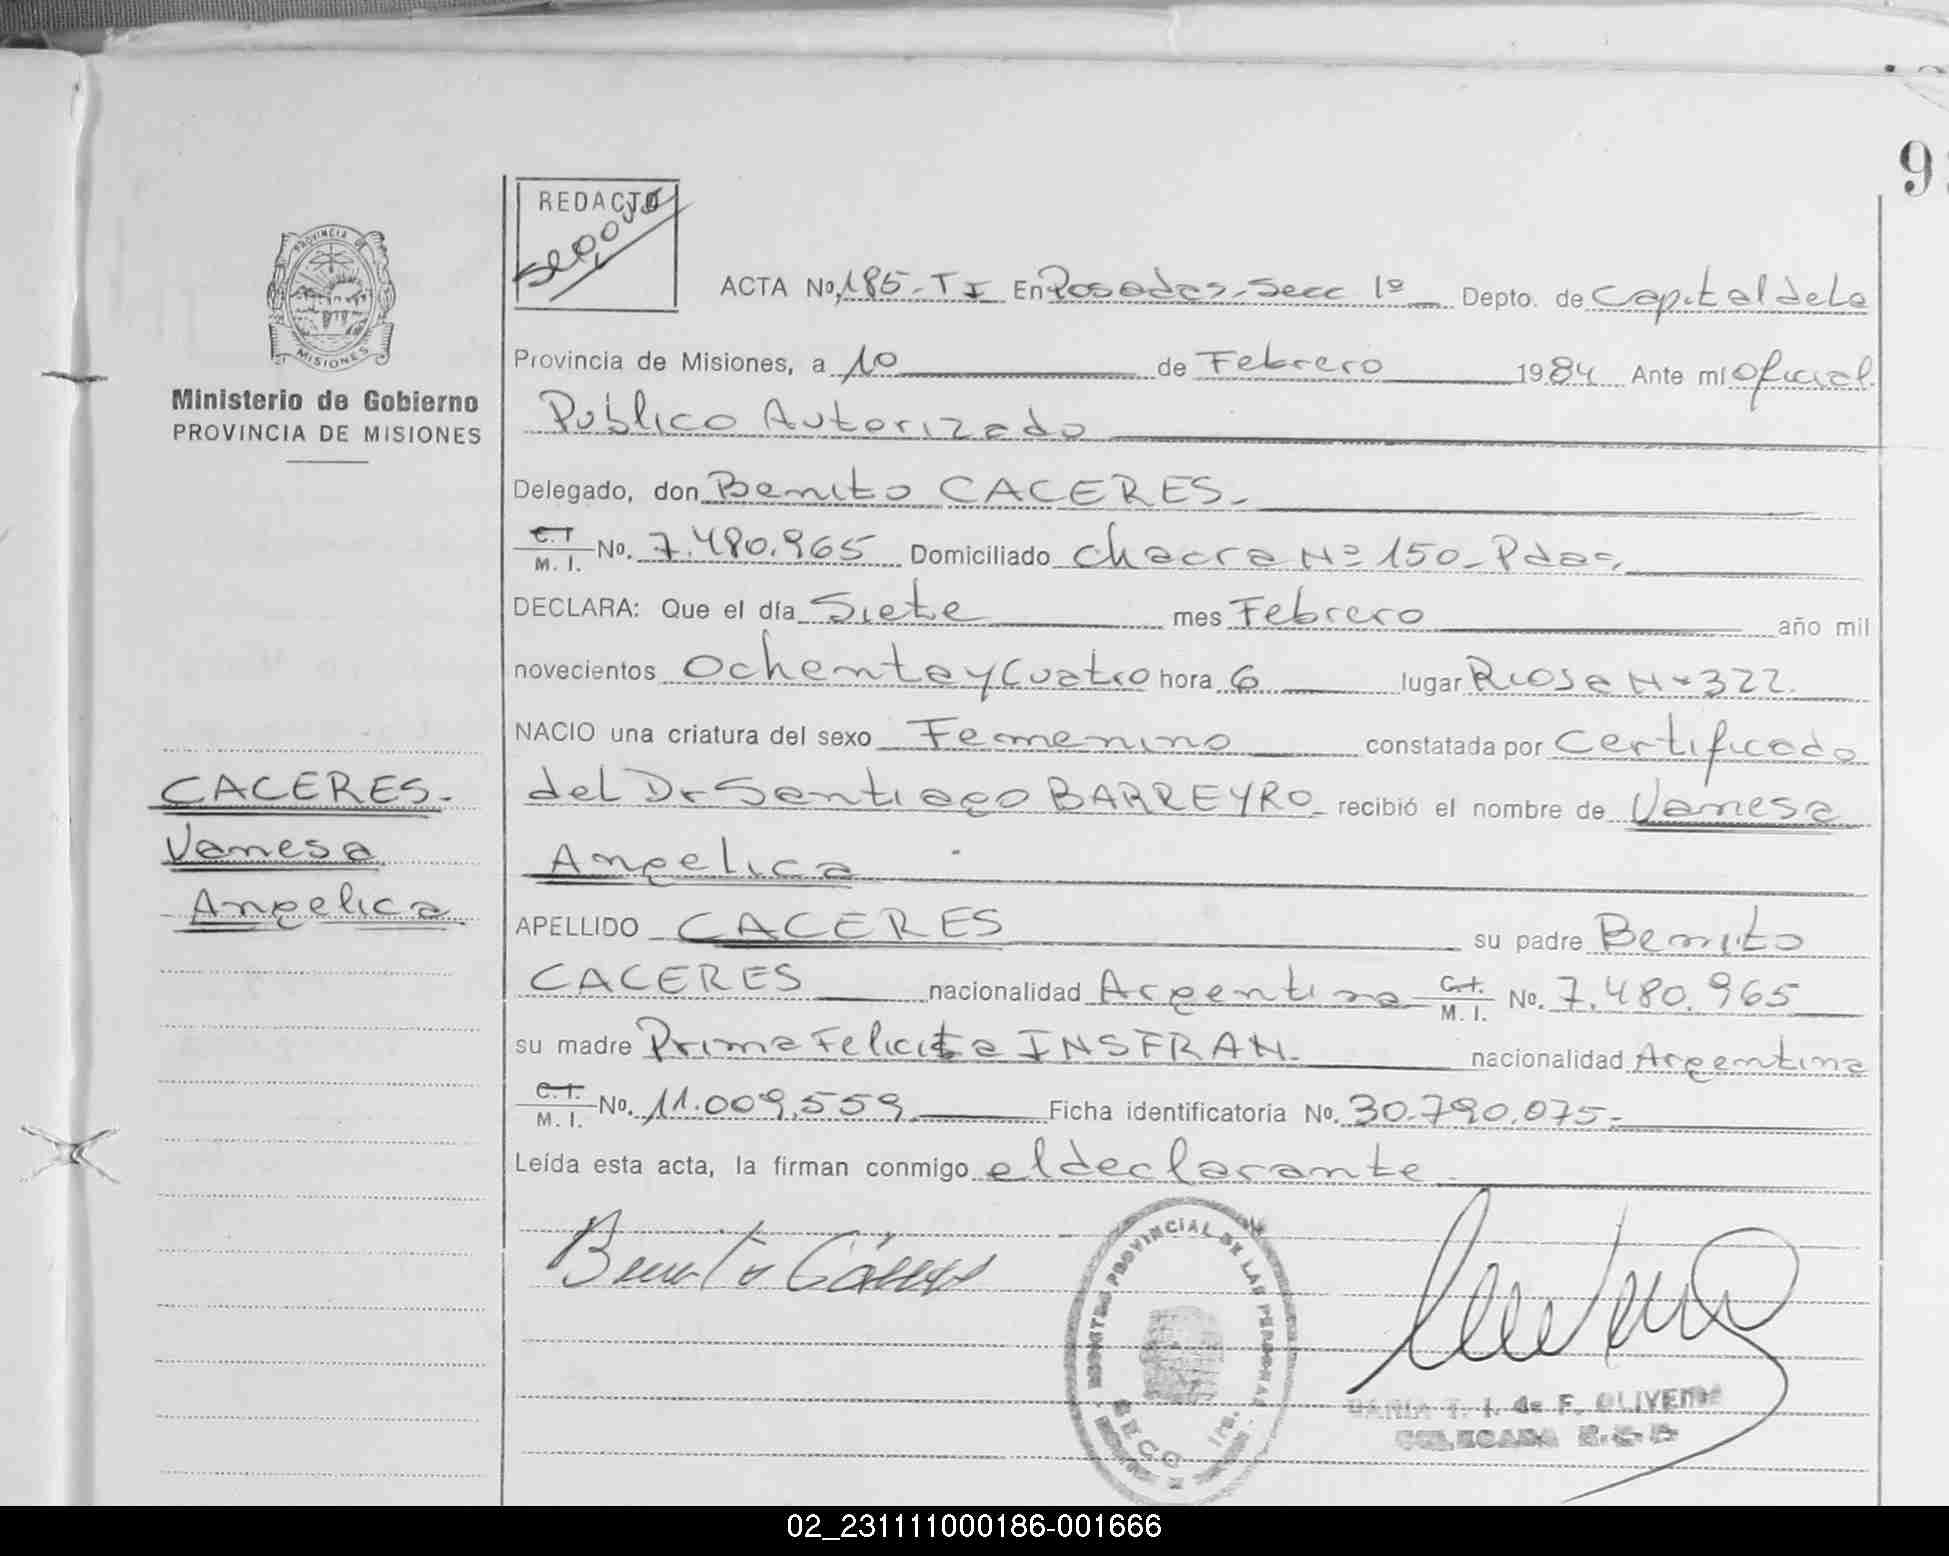 9
REDACTO
PROVINCIA DE
MISIONES
ACTA No. 185-T I En Posadas-Secc 1º Depto. de Capital de la
Provincia de Misiones, a 10 de Febrero 1984 Ante mí Oficial
Ministerio de Gobierno
PROVINCIA DE MISIONES
Publico Autorizado
Delegado, don Benito CACERES.
C.I. M. I. No. 7.480.965 Domiciliado Chacra Nº 150-Pdas.
DECLARA: Que el día Siete mes Febrero año mil
novecientos Ochenta y Cuatro hora 6 lugar Rioja Nº 322.
NACIO una criatura del sexo Femenino constatada por Certificado
CACERES.
del Dr Santiago BARREYRO recibió el nombre de Vanesa
Vanesa
Angelica
Angelica
APELLIDO CACERES su padre Benito
CACERES nacionalidad Argentina C.I. M. I. No. 7.480.965
su madre Prima Felicita INSFRAN. nacionalidad Argentina
C.I. M. I. No. 11.009.559 Ficha identificatoria No. 30.790.075.
Leída esta acta, la firman conmigo el declarante
Benito Cáceres
REGISTRO PROVINCIAL DE LAS PERSONAS
SECC 1ra.
MARIA T. I. de F. OLIVEIRA
DELEGADA R.C.P.
02_231111000186-001666